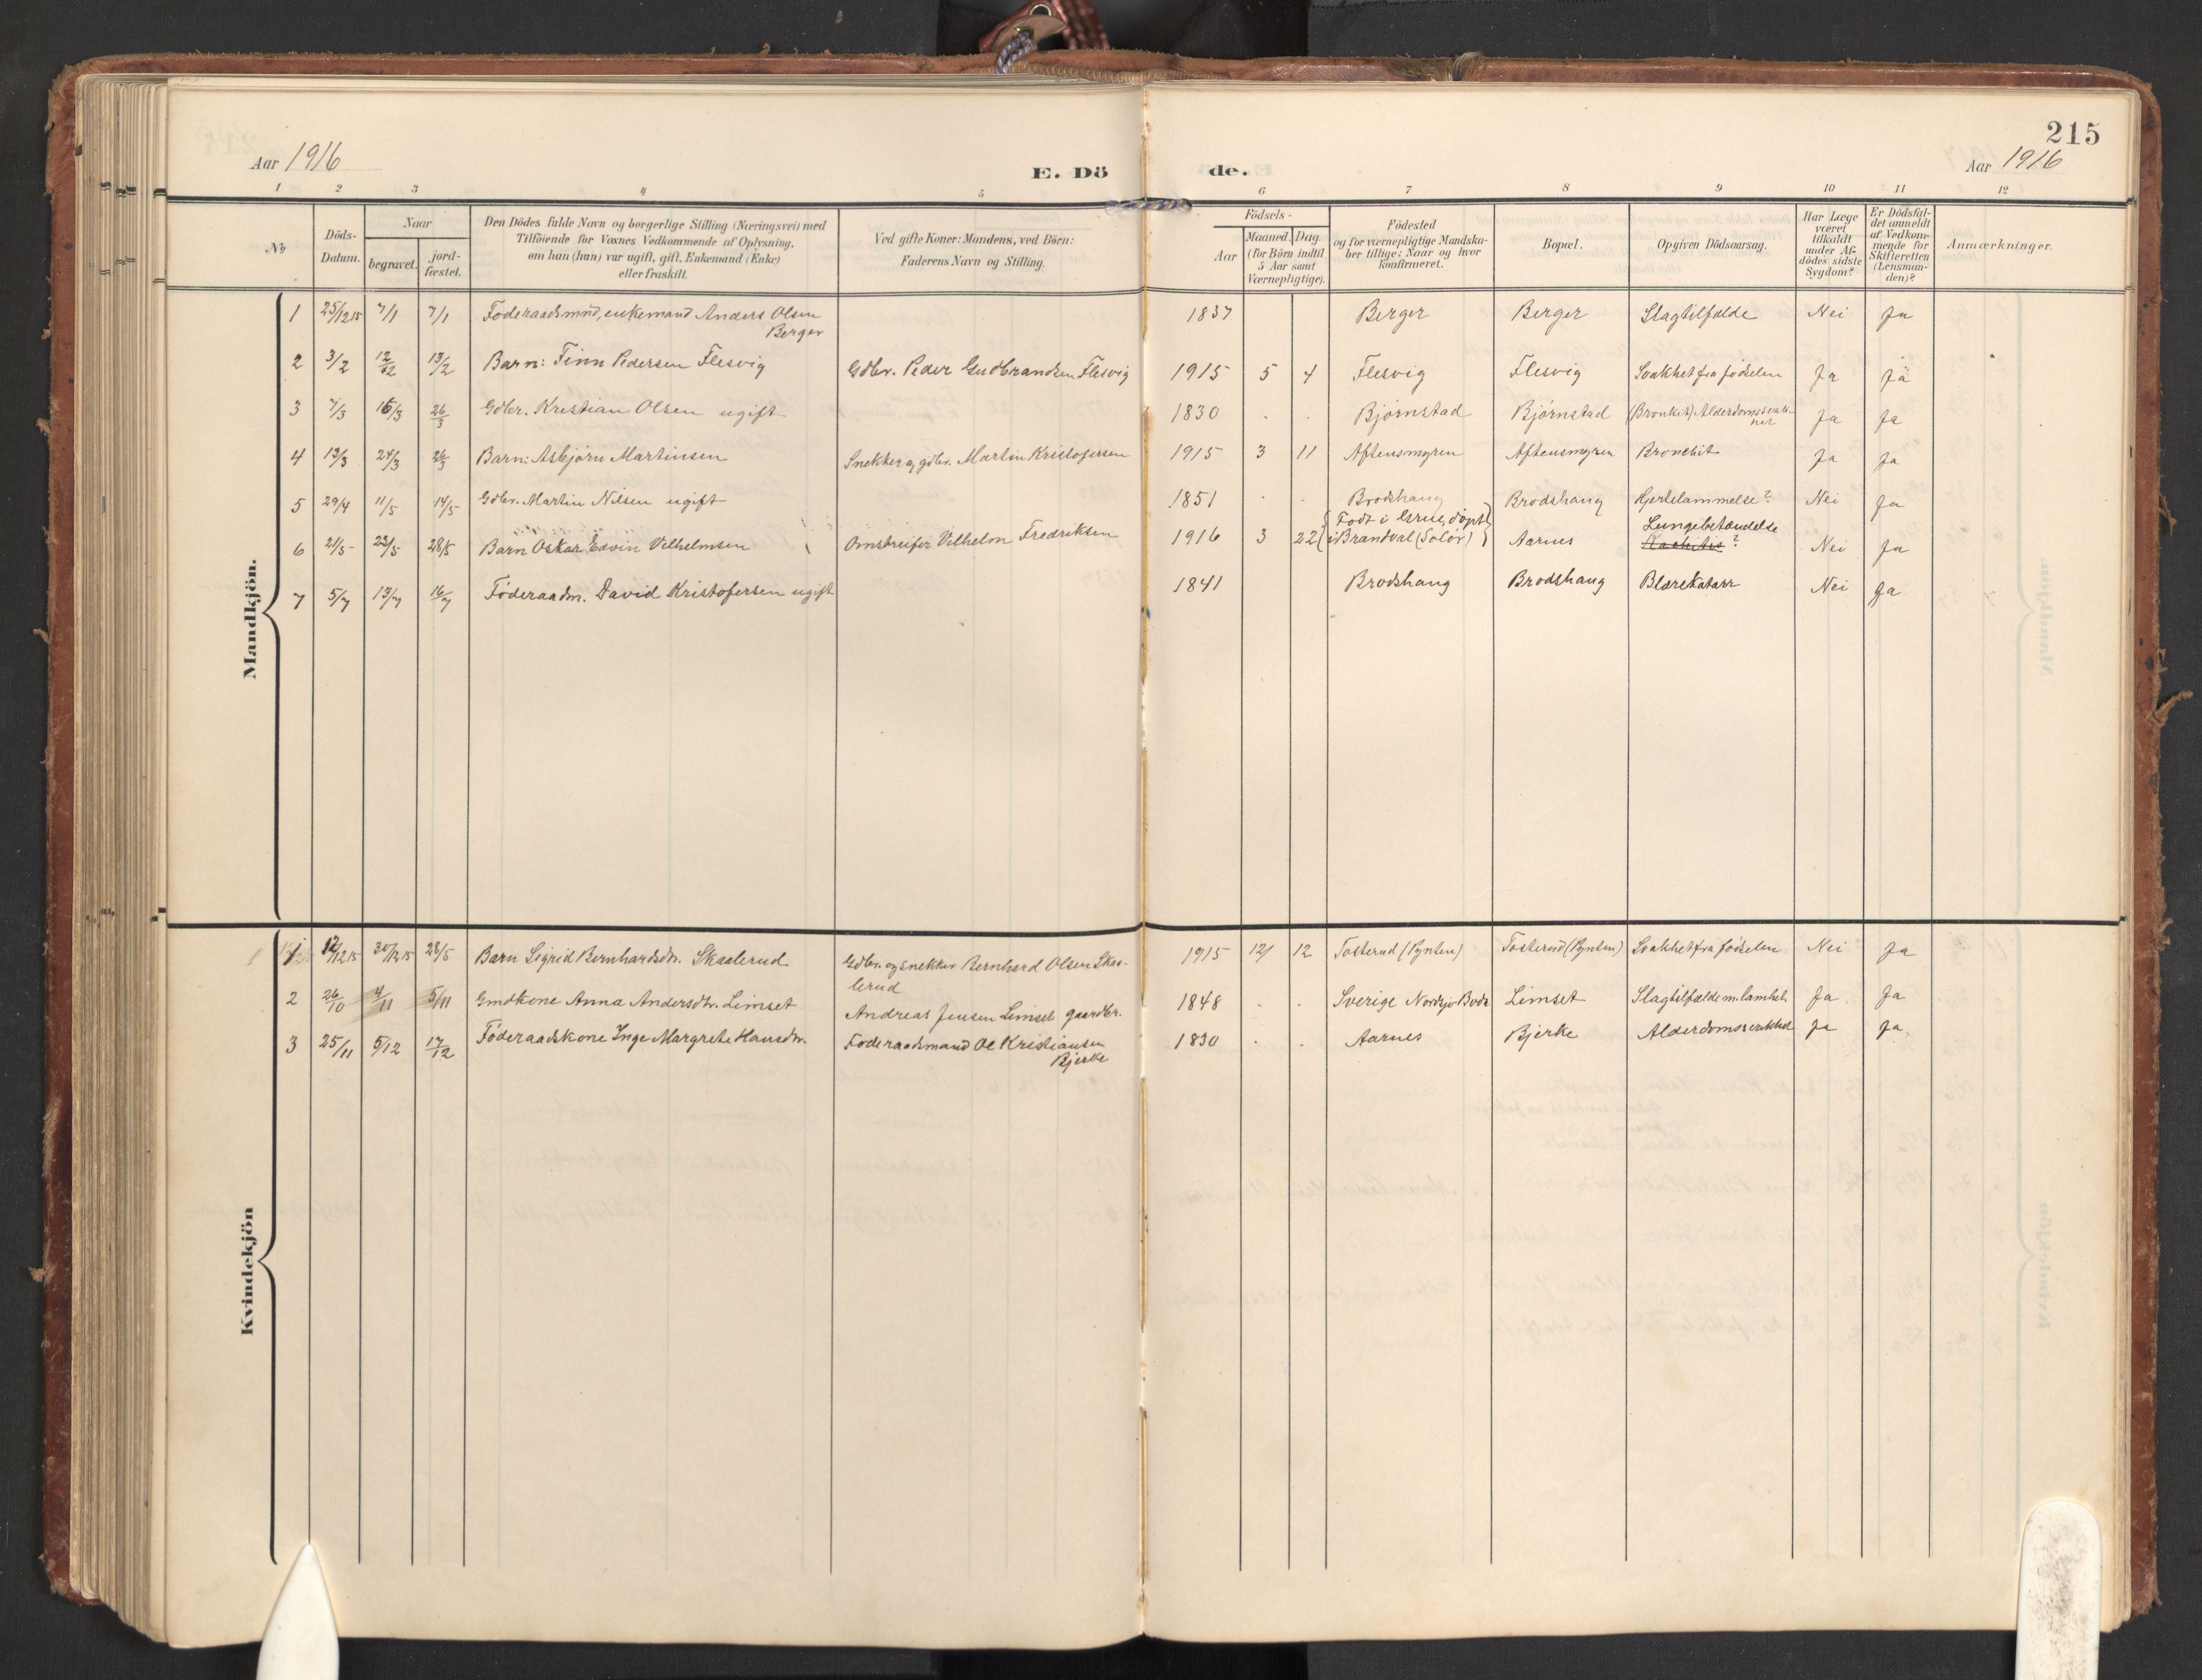 215
Aar 1916
E. Dö de.
Aar 1916
1 2 3 4 5 6 7 8 9 10 11 12
No
Döds-
Datum.
Naar
begravet.
jord-
fæstet.
Den Dödes fulde Navn og borgerlige Stilling (Næringsvei) med
Tilföiende for Voxnes Vedkommende af Oplysning,
om han (hun) var ugift, gift, Enkemand (Enke)
eller fraskilt.
Ved gifte Koner: Mandens, ved Börn:
Faderens Navn og Stilling.
Födsels-
Aar
Maaned. Dag.
(for Börn indtil
5 Aar samt
Værnepligtige).
Födested
og for værnepligtige Mandska-
ber tillige: Naar og hvor
konfirmeret.
Bopæl.
Opgiven Dödsaarsag.
Har Læge
været
tilkaldt
under Af-
dödes sidste
Sygdom?
Er Dödsfal-
det anmeldt
af Vedkom-
mende for
Skifteretten
(Lensman-
den)?
Anmærkninger.
Mandkjön.
1 25/12 15 7/1 7/1 Føderaadsmnd, enkemand Anders Olsen
Berger
1837 Berger Berger Slagtilfælde Nei Ja
2 3/2 12/2 13/2 Barn: Finn Pedersen Flesvig Gdbr. Peder Gudbrandsen Flesvig 1915 5 4 Flesvig Flesvig Svakhet fra fødselen Ja Ja
3 7/3 16/3 26/3 Gdbr. Kristian Olsen ugift 1830 . . Bjørnstad Bjørnstad (Bronkit) Alderdomssvak-
het
Ja Ja
4 13/3 24/3 26/3 Barn: Asbjørn Martinsen Snekker og gdbr. Martin Kristofersen 1915 3 11 Aftensmyren Aftensmyren Bronchit Ja Ja
5 29/4 11/5 14/5 Gdbr. Martin Nilsen ugift 1851 . . Brodshaug Brodshaug Hjertelammelse? Nei Ja
6 21/5 23/5 28/5 Barn Oskar Edvin Vilhelmsen Omstreifer Vilhelm Fredriksen 1916 3 22 {Født i Grue, døpt
i Brandval (Solør)} Aarnes Lungebetændelse
Rachitis? Nei Ja
7 5/7 13/7 16/7 Føderaadm. David Kristofersen ugift 1841 Brodshaug Brodshaug Blærekatarr Nei Ja
Kvindekjön
1 12/12 15 30/12 15 28/5 Barn Sigrid Bernhardsdtr. Skaalerud Gdbr. og snekker Bernhard Olsen Skaa-
lerud
1915 12 12 Tosterud (Pynten) Tosterud (Pynten) Svakhet fra fødselen Nei Ja
2 26/10 4/11 5/11 Gmdkone Anna Andersdtr. Limset Andreas Jensen Limset gaardbr. 1848 . . Sverige Limset Slagtilfælde m. lamhet. Ja Ja
3 25/11 5/12 17/12 Føderaadskone Inge Margrete Hansdtr. Føderaadsmand Ole Kristiansen
Bjerke
1830 . . Aarnes Bjerke Alderdomssvakhet Ja Ja